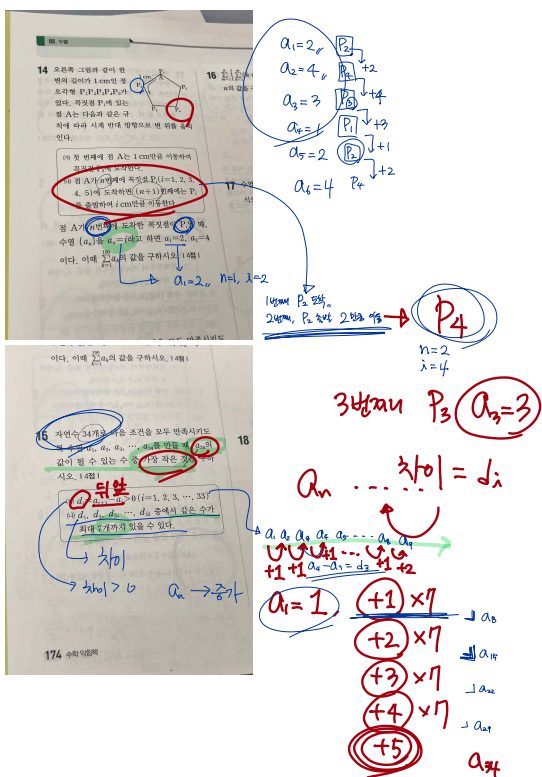 수열
14 오른쪽 그림과 같이 한
변의 길이가 1 cm인 정
오각형 P₁P₂P₃P₄P₅가
있다. 꼭짓점 P₁에 있는
점 A는 다음과 같은 규
칙에 따라 시계 반대 방향으로 변 위를
인다.
1 cm
A
16
(가) 첫 번째에 점 A는 1 cm만큼 이동하여
꼭짓점 P₂에 도착한다.
(나) 점 A가 n번째에 꼭짓점 Pᵢ(i=1, 2, 3,
4, 5)에 도착하면 (n+1)번째에는 Pᵢ
를 출발하여 i cm만큼 이동한다.
17
점 A가 n번째에 도착한 꼭짓점이 Pᵢ일 때,
수열 {aₙ}을 aₙ=i라고 하면 a₁=2, a₂=4
이다. 이때 aₖ의 값을 구하시오. [4점]
a₁=2,, n=1, i=2
a₁=2,, P₂
+2
a₂=4,, P₄
+4
a₃=3 P₃
+3
a₄=1 P₁
+1
a₅=2 P₂
+2
a₆=4 P₄
1번째 P₂ 도착,,
2번째, P₂ 출발 2만큼 이동
P₄
n=2
i=4
3번째 P₃ a₃=3
이다. 이때 aₖ의 값을 구하시오. [4점]
15 자연수 34개로 다음 조건을 모두 만족시키도
수열 a₁, a₂, a₃, …, a₃₄를 만들 때, a₃₄의
값이 될 수 있는 수 중 가장 작은 것을 구하
시오. [4점]
18
뒤 앞
(가) dᵢ=aᵢ₊₁-aᵢ>0 (i=1, 2, 3, …, 33)
(나) d₁, d₂, d₃, …, d₃₃ 중에서 같은 수가
최대 7개까지 있을 수 있다.
차이
차이 > 0 aₙ → 증가
174 수학 익힘책
aₙ …… 차이 = dᵢ
a₁ a₂ a₃ a₄ a₅ … a₈ a₉
+1 +1 +1 … +1 +2
a₄-a₃=d₃
a₁=1, +1 ×7
a₈
+2 ×7
a₁₅
+3 ×7
a₂₂
+4 ×7
a₂₉
+5
a₃₄